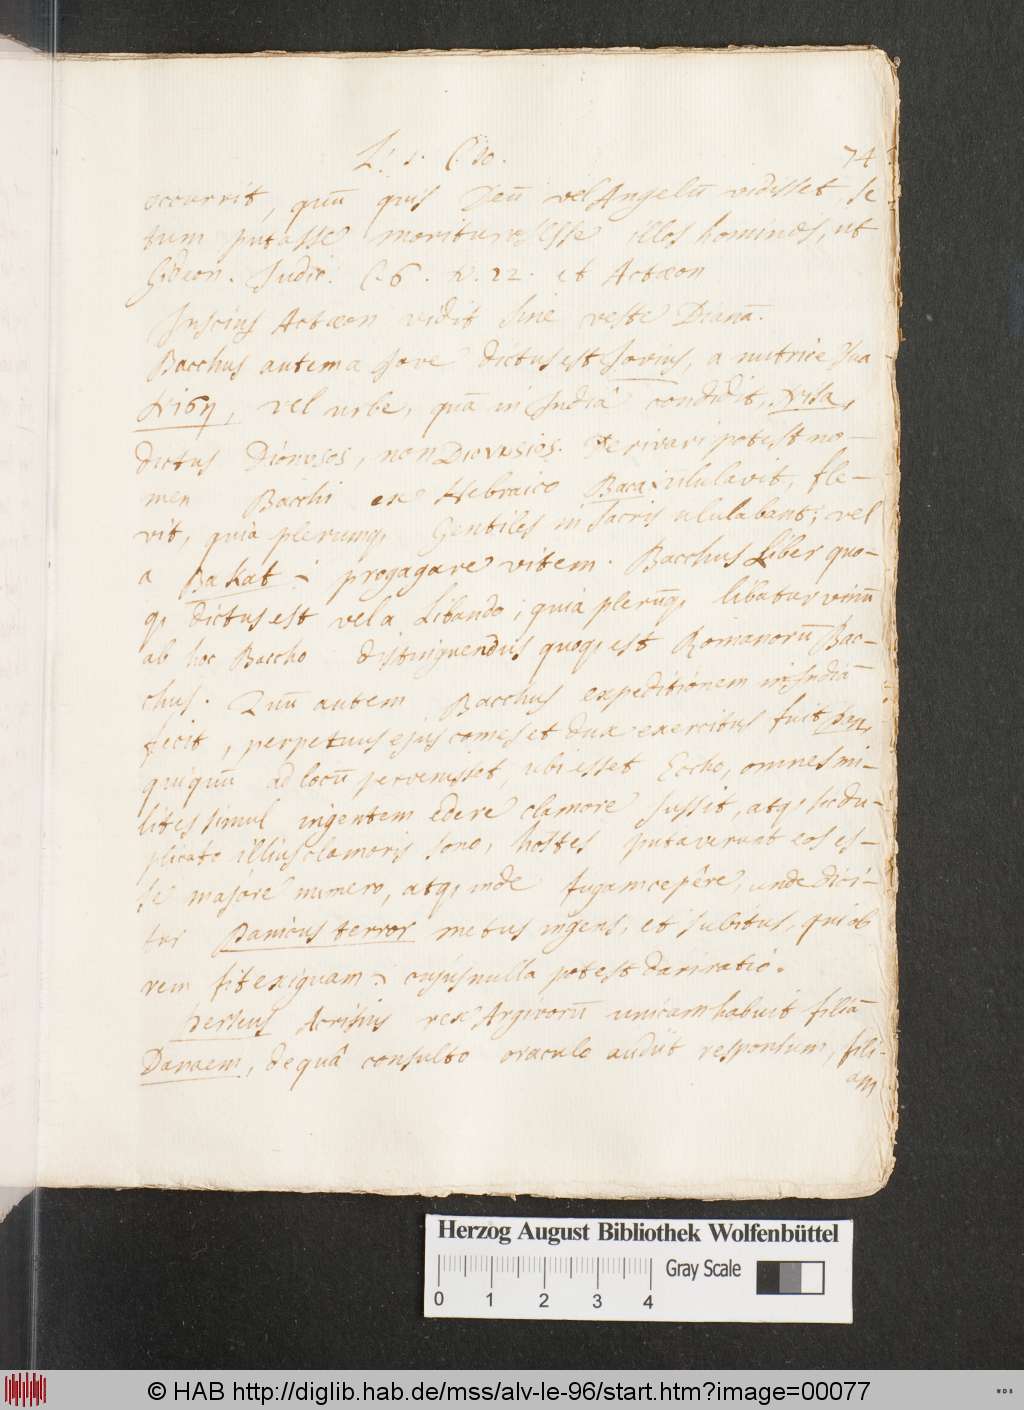 L. 1. C. 10. 74
occurrit, quū quis Deū vel Angelū vidisset, se
tum putasse morituros esse illos homines, ut
Gideon. Judic. C. 6. V. 22. et Actæon
Inscius Actæon vidit sine veste Dianā.
Bacchus autem a Jove dictus est Jovius, a nutrice sua
vel urbe, quā in Indiâ condidit, Nisa,
dictus Dionysos, non Dionysios. Derivari potest no-
men Bacchi ex Hebraico Baca ululavit, fle-
vit, quia plerumq, Gentiles in sacris ululabant; vel
a Bakat i progagare vitem. Bacchus Liber quo-
q, dictus est vel a Libando; quia plerūq, libatur vinū
ab hoc Baccho distinguendus quoq, est Romanorū Bac-
chus. Quū autem Bacchus expeditionem in Indiā
fecit, perpetuus ejus comes et dux exercitus fuit Pan,
qui quū ad locū pervenisset, ubi esset Echo, omnes mi-
lites simul ingentem edere clamore jussit, atq,
plicato illius clamoris sono, hostes putaverunt eos es-
se majore numero, atq, inde fugam cepêre, unde dici-
tur Panicus terror metus ingens, et subitus, qui ob
rem fit exiguam i cujus nulla potest dari ratio.
Perseus Acrisius rex Argivorū unicam habuit filiā
Danaem, de quâ consulto oraculo audiit responsum, fili-
am
Herzog August Bibliothek Wolfenbüttel
Gray Scale
0 1 2 3 4
© HAB http://diglib.hab.de/mss/alv-le-96/start.htm?image=00077